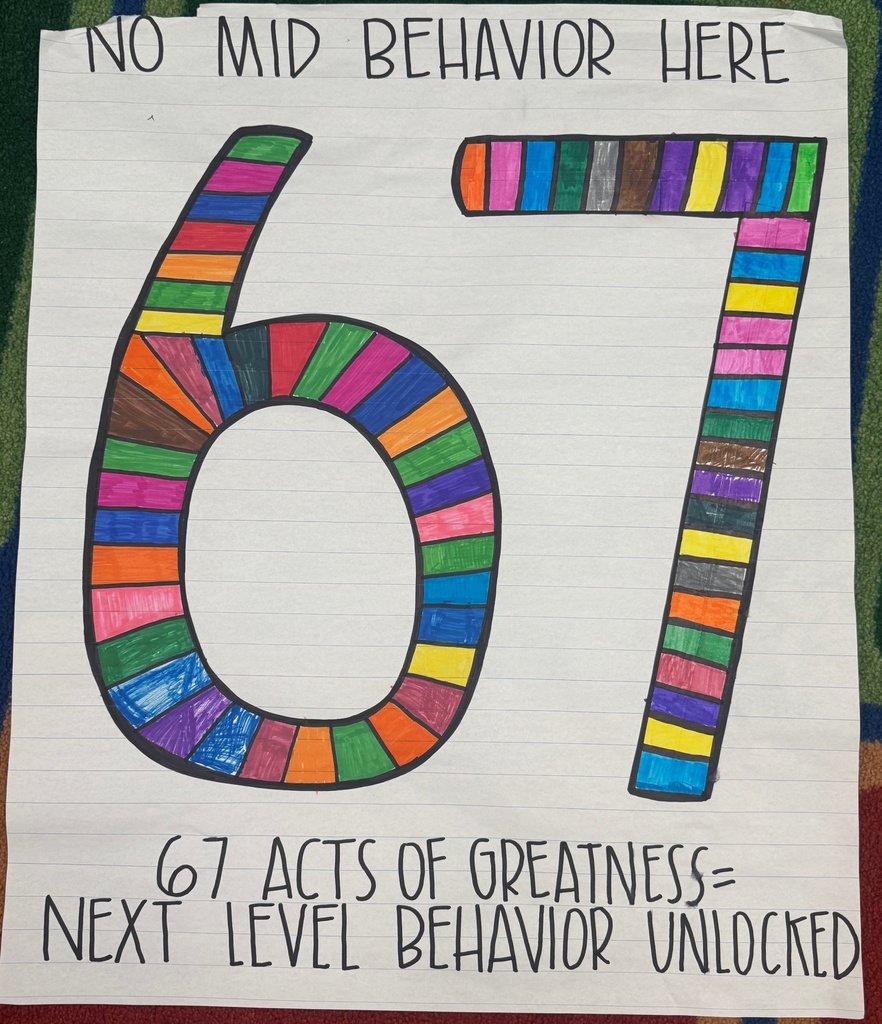 NO MID BEHAVIOR HERE
67
67 ACTS OF GREATNESS=
NEXT LEVEL BEHAVIOR UNLOCKED